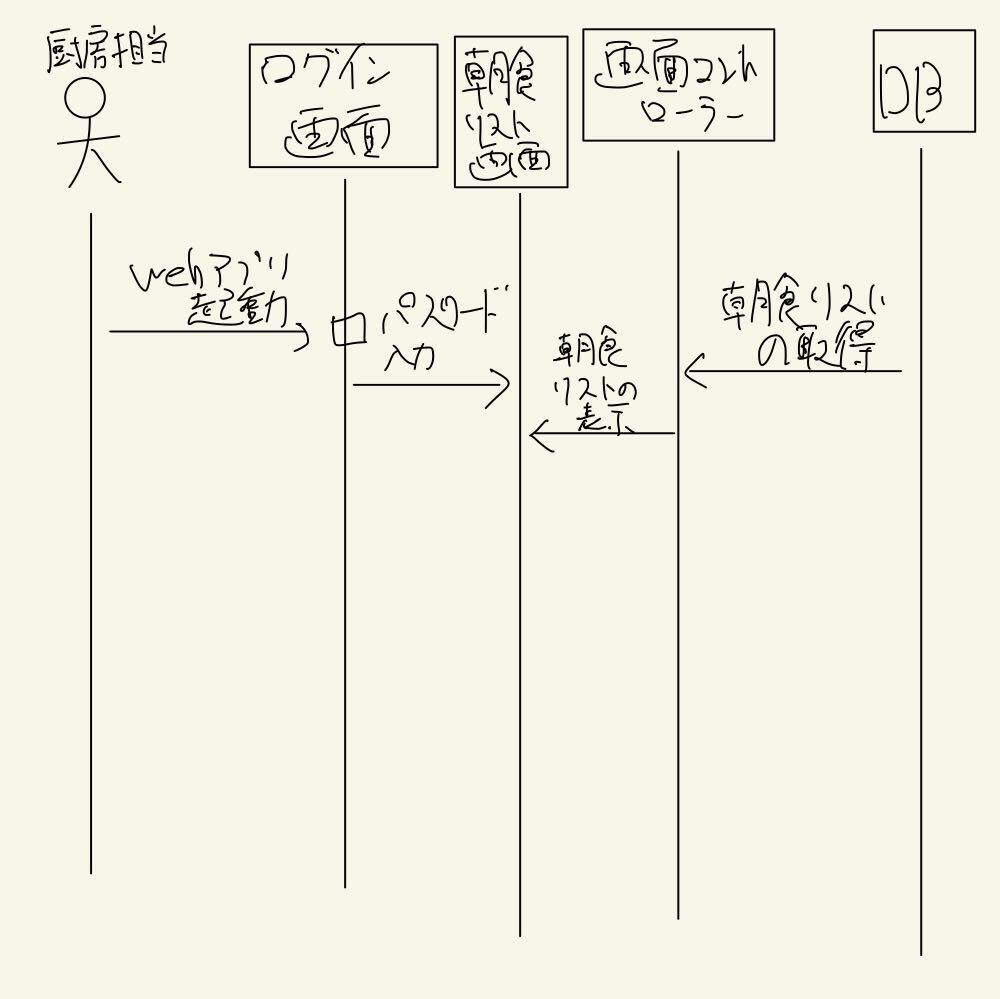 厨房担当
ログイン
画面
朝食
リスト
画面
画面コント
ローラー
DB
Webアプリ
起動
パスワード
入力
朝食
リストの
表示
朝食リスト
の取得